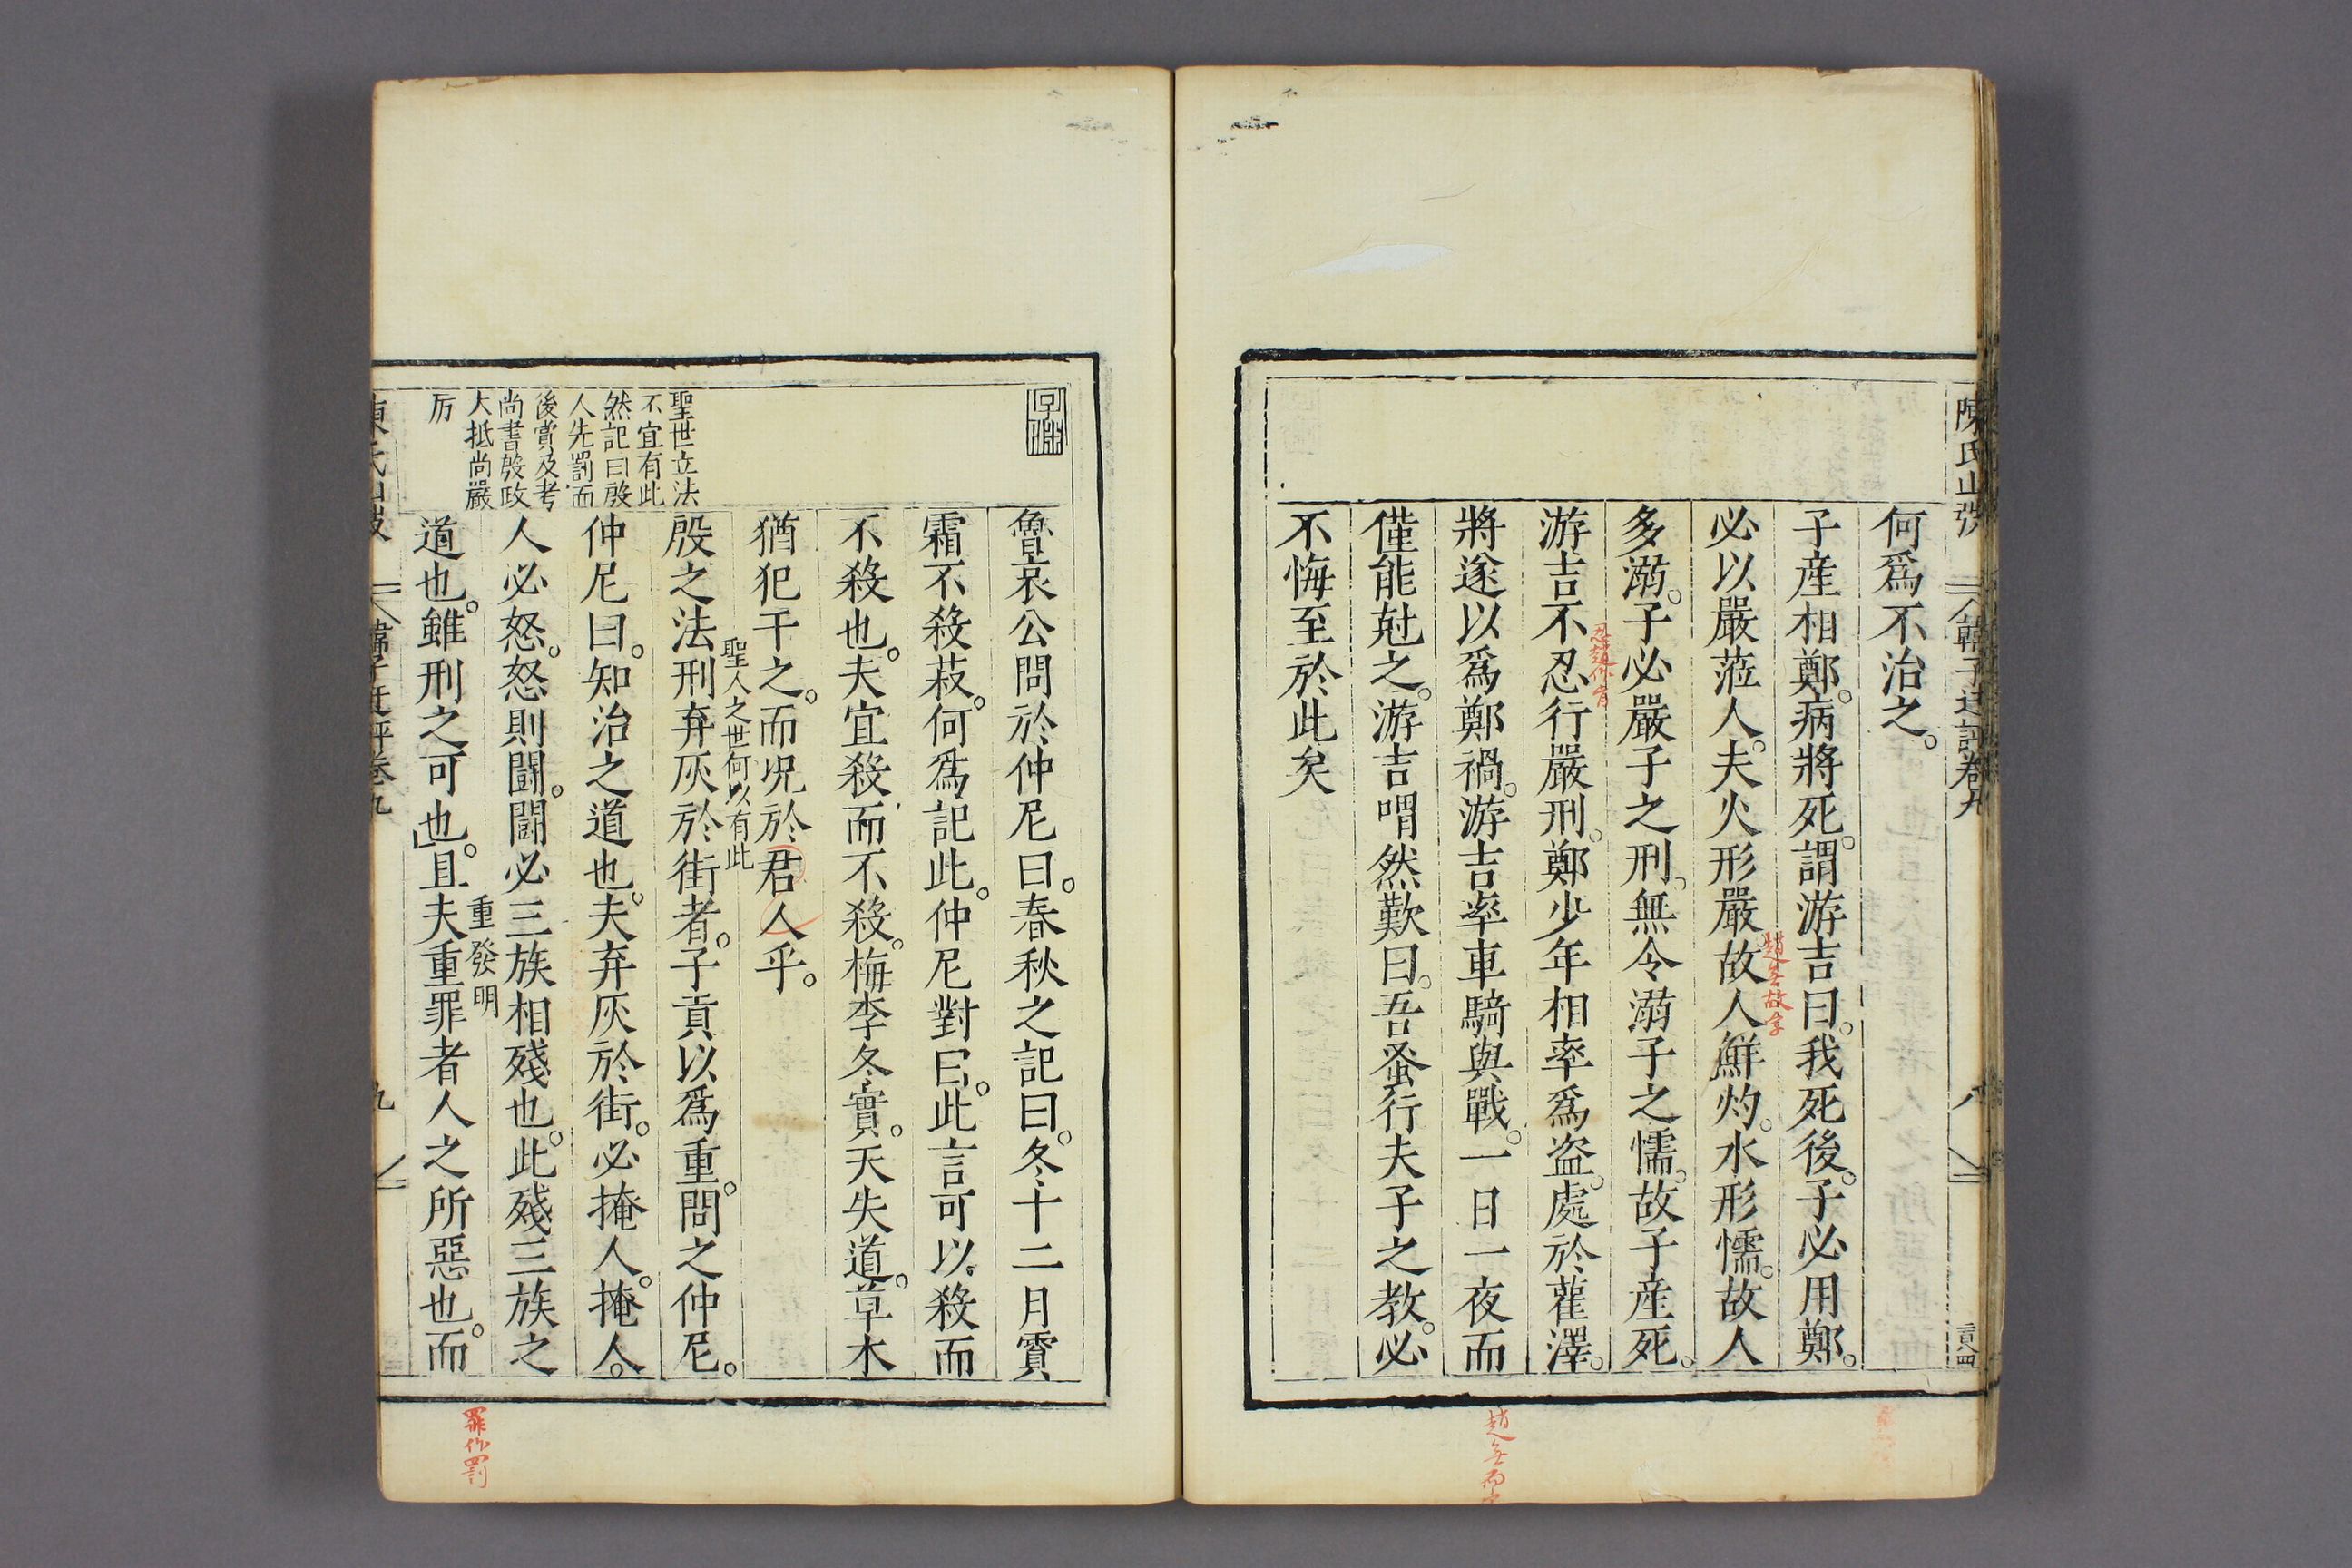 何爲不治之。
子産相鄭。病將死。謂游吉曰。我死後。子必用鄭。
必以嚴蒞人。夫火形嚴故人鮮灼。水形懦。故人
趙無故字
多溺。子必嚴子之刑。無令溺子之懦。故子産死。
游吉不忍行嚴刑。鄭少年相率爲盗。處於雚澤。
忍趙作肯
將遂以爲鄭禍。游吉率車騎與戰。一日一夜而
趙無而字
僅能尅之。游吉喟然歎曰。吾蚤行夫子之教。必
不悔至於此矣
韓子迂評卷九
八
魯哀公問於仲尼曰。春秋之記曰。冬十二月霣
霜不殺菽。何爲記此。仲尼對曰。此言可以殺而
不殺也。夫宜殺而不殺。梅李冬實。天失道。草木
猶犯干之。而况於君人乎。
聖人之世何以有此
殷之法刑弃灰於街者。子貢以爲重。問之仲尼。
仲尼曰。知治之道也。夫弃灰於街。必掩人。掩人。
人必怒。怒則鬪。鬪必三族相殘也。此殘三族之
重發明
道也。雖刑之可也。且夫重罪者人之所惡也。而
聖世立法
不宜有此
然記曰殷
人先罰而
後賞及考
尚書殷政
大抵尚嚴
厉
罪作罰
九